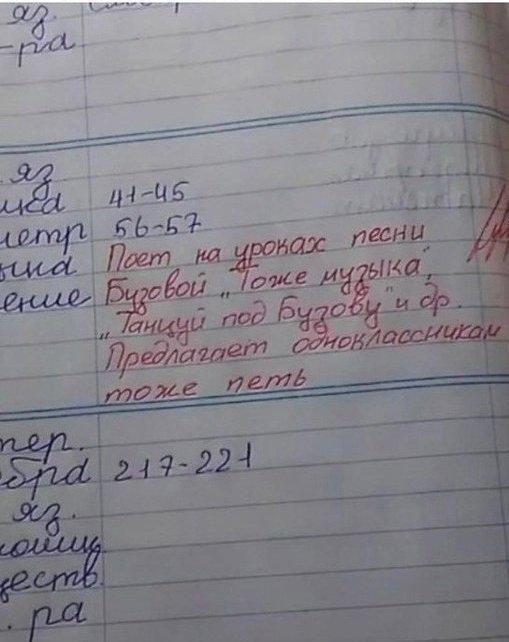 яз.
-ра
яз
ика 41-45
метр 56-57
ыка Поет на уроках песни
ение Бузовой „Тоже музыка",
„Танцуй под Бузову" и др.
Предлагает одноклассникам
тоже петь
тер.
бра 217-221
яз.
еств.
. ра